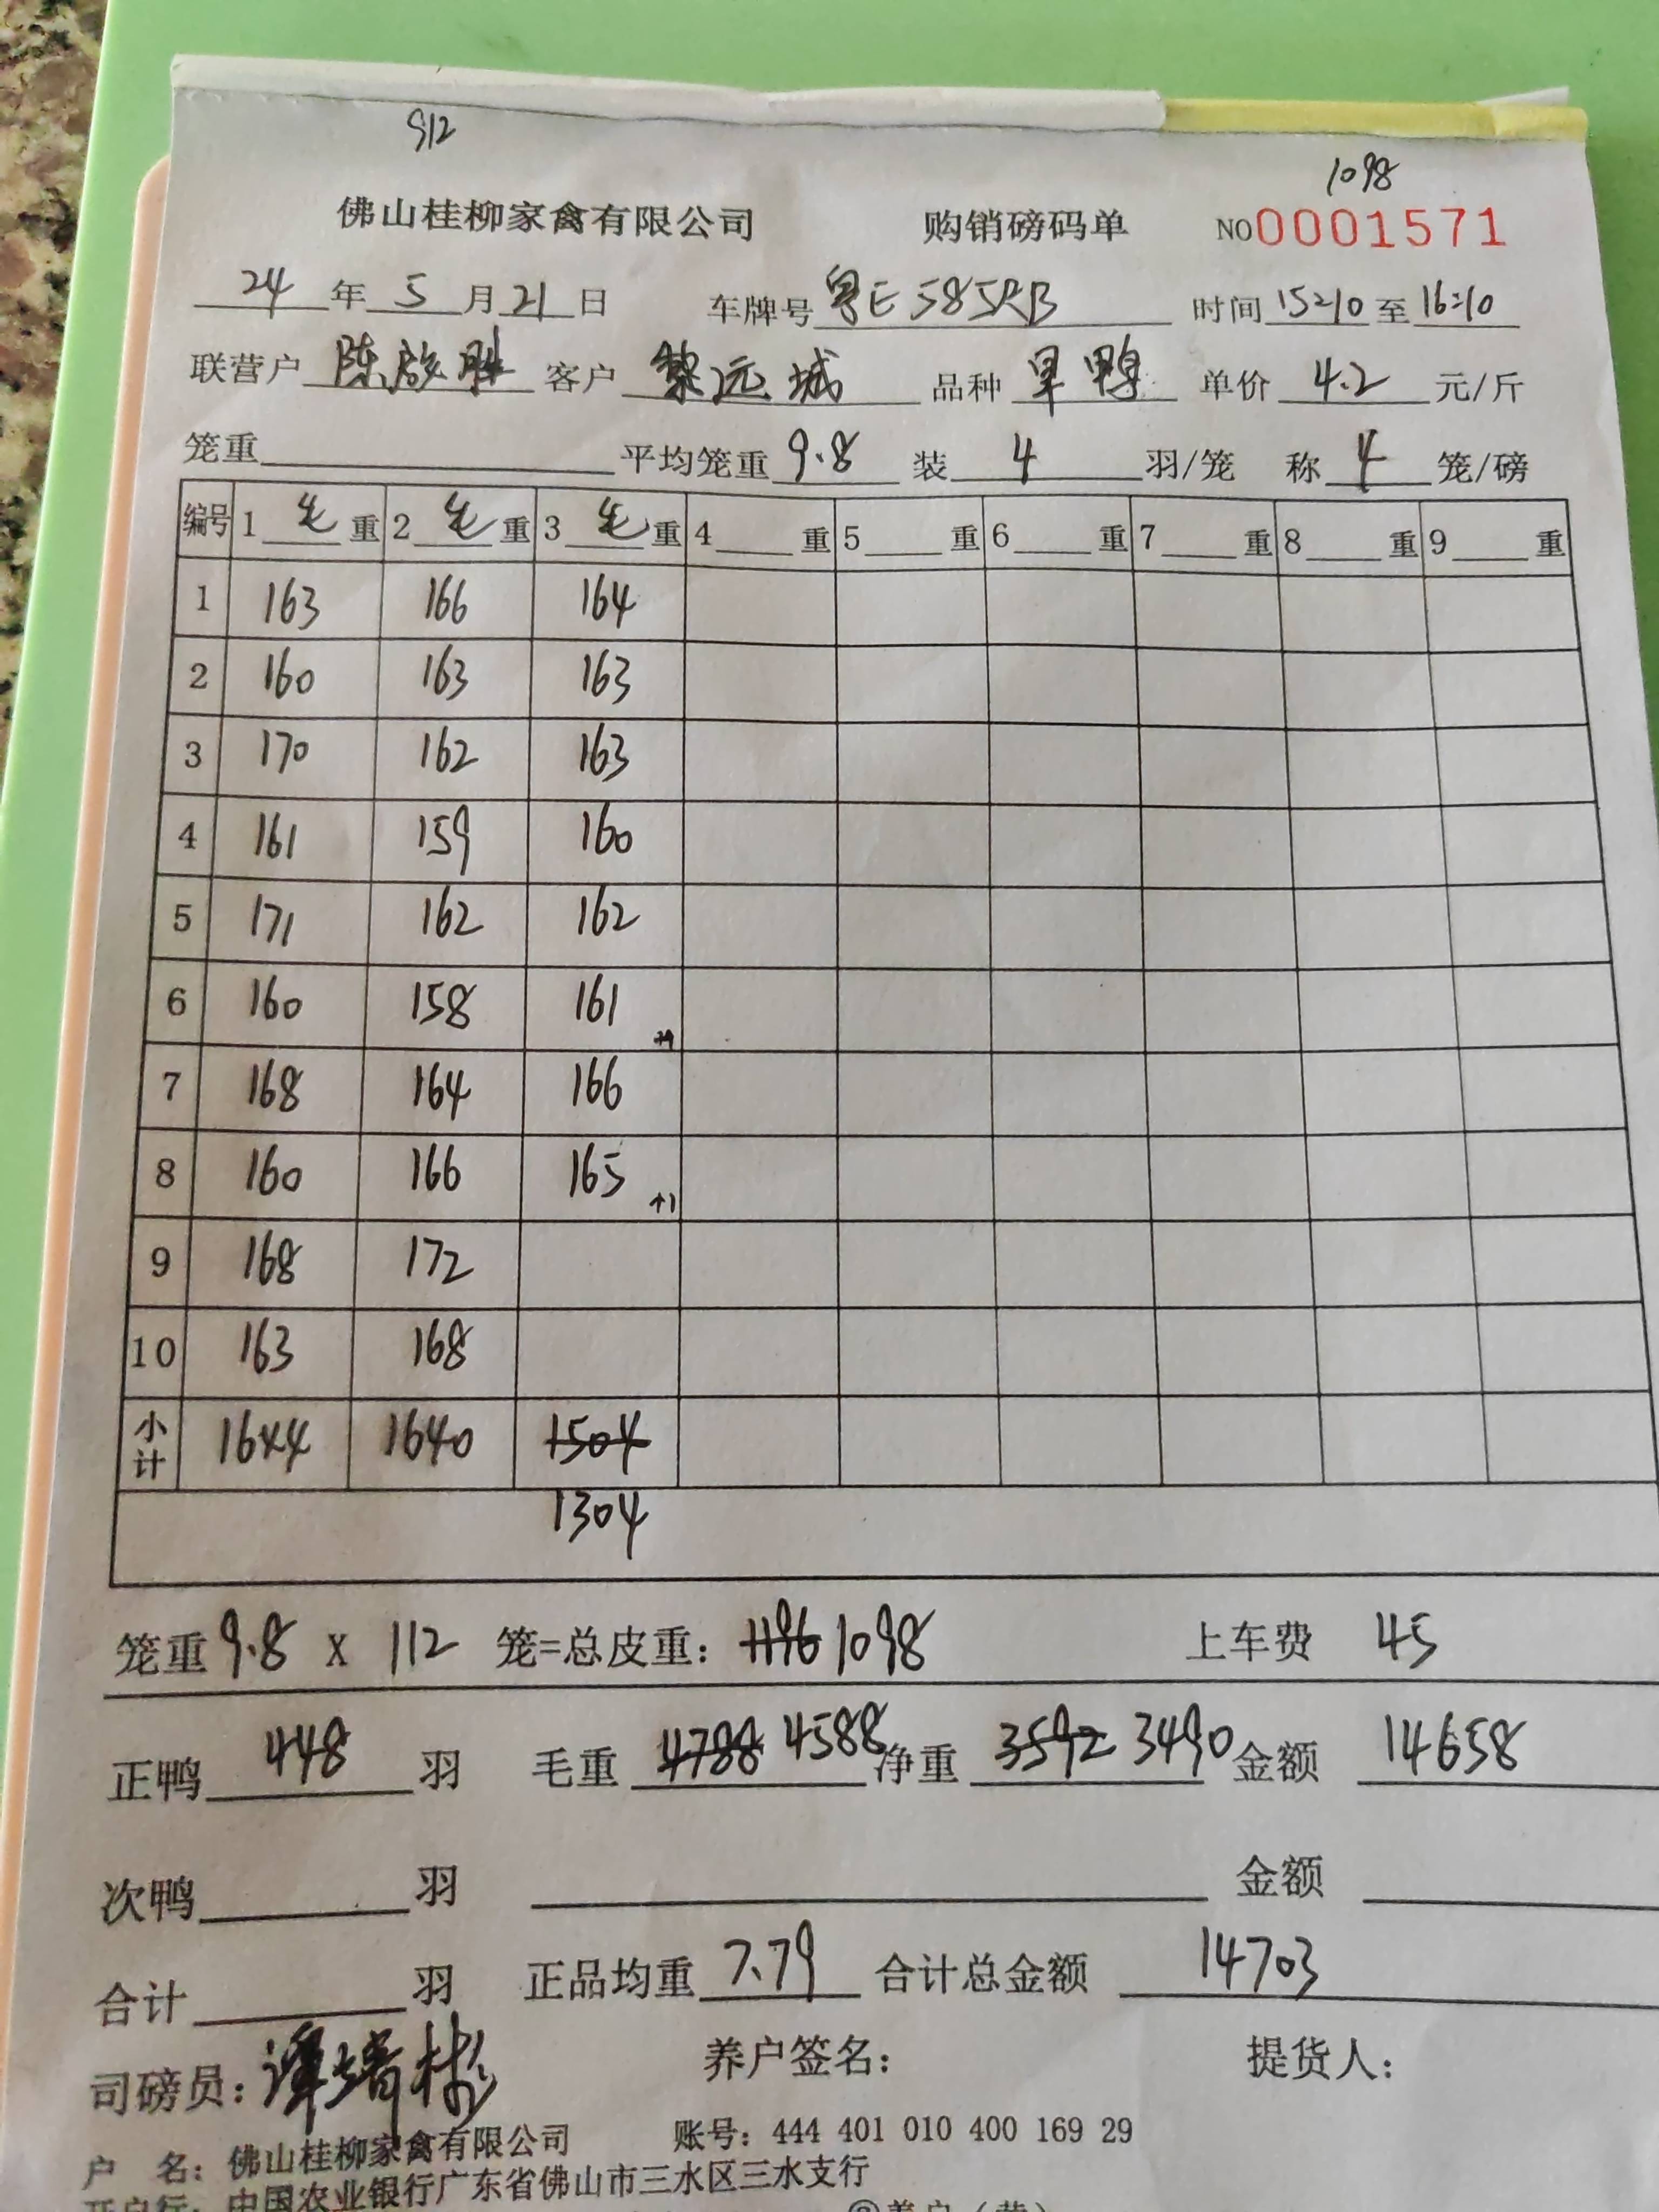 912
1098
佛山桂柳家禽有限公司 购销磅码单 NO0001571
24年5月21日 车牌号粤E585RB 时间15:10至16:10
联营户 陈啟胜 客户 黎远城 品种 旱鸭 单价 4.2 元/斤
笼重 平均笼重 9.8 装 4 羽/笼 称 4 笼/磅
编号 1 毛 重 2 毛 重 3 毛 重 4 重 5 重 6 重 7 重 8 重 9 重
1 163 166 164
2 160 163 163
3 170 162 163
4 161 159 160
5 171 162 162
6 160 158 161
7 168 164 166
8 160 166 165 +1
9 168 172
10 163 168
小计 1644 1640 1504
1304
笼重9.8 X 112 笼=总皮重: 1196 1098 上车费 45
正鸭 448 羽 毛重 4788 4588 净重 3592 3490 金额 14658
次鸭 羽 金额
合计 羽 正品均重 7.79 合计总金额 14703
司磅员: 谭培彬 养户签名: 提货人:
户 名: 佛山桂柳家禽有限公司 账号: 444 401 010 400 169 29
开户行: 中国农业银行广东省佛山市三水区三水支行